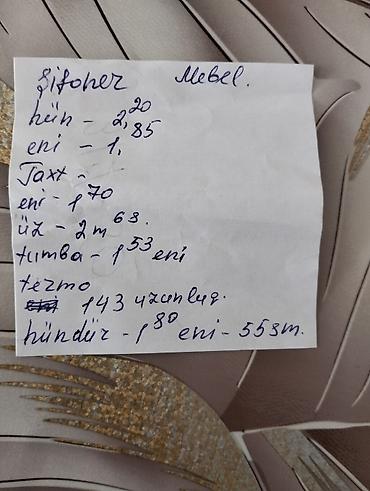 şifoner Mebel.
hün - 2,20
eni - 1,85
Taxt -
eni - 1 70
üz - 2 m 63.
tumba - 1 53 eni
termo
143 uzunlug.
hündür - 1 80 eni - 55 sm.